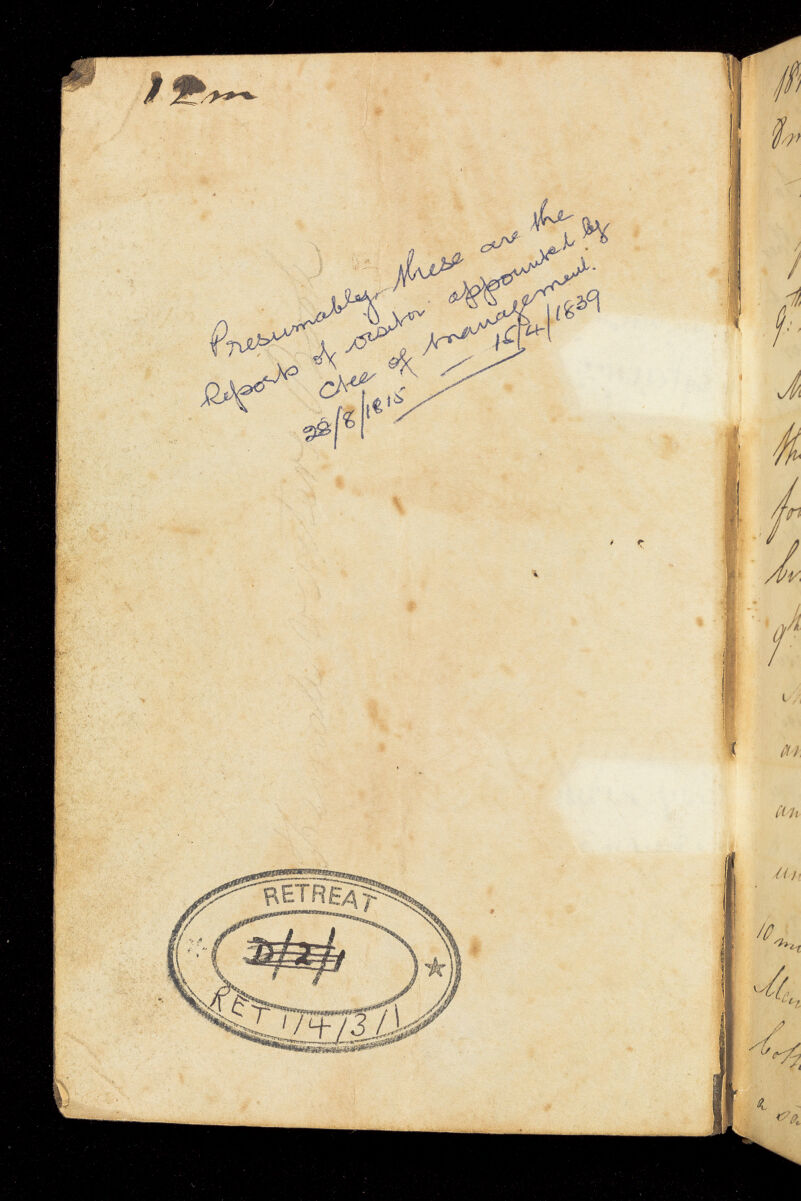 12m
Presumably these are the
Reports of visitor appointed by
Ctee of management.
28/8/1815 — 15/4/1839
RETREAT
D/2/1
RET 1/4/3/1
9th
10 mo